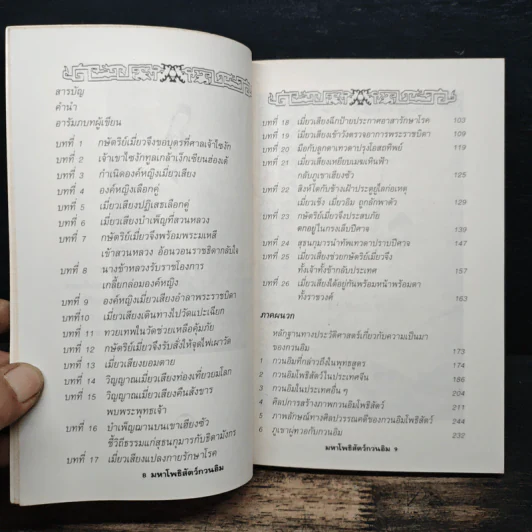 สารบัญ
คำนำ
อารัมภบทผู้เขียน
บทที่ 1 กษัตริย์เมี่ยวจึงขอบุตรที่ศาลเจ้าไซงัก
บทที่ 2 เจ้าเขาไซงักทูลเกล้าเง็กเซียนฮ่องเต้
บทที่ 3 กำเนิดองค์หญิงเมี่ยวเสียง
บทที่ 4 องค์หญิงเลือกคู่
บทที่ 5 เมี่ยวเสียงปฏิเสธเลือกคู่
บทที่ 6 เมี่ยวเสียงบำเพ็ญที่สวนหลวง
บทที่ 7 กษัตริย์เมี่ยวจึงพร้อมพระมเหสี
เข้าสวนหลวง อ้อนวอนราชธิดากลับใจ
บทที่ 8 นางข้าหลวงรับราชโองการ
เกลี้ยกล่อมองค์หญิง
บทที่ 9 องค์หญิงเมี่ยวเสียงอำลาพระราชบิดา
บทที่10 เมี่ยวเสียงเดินทางไปวัดแปะเฉียก
บทที่ 11 ทวยเทพในวัดช่วยเหลือคุ้มภัย
บทที่ 12 กษัตริย์เมี่ยวจึงรับสั่งให้จุดไฟเผาวัด
บทที่ 13 เมี่ยวเสียงยอมตาย
บทที่ 14 วิญญาณเมี่ยวเสียงท่องเที่ยวยมโลก
บทที่ 15 วิญญาณเมี่ยวเสียงคืนสังขาร
พบพระพุทธเจ้า
บทที่ 16 บำเพ็ญฌานบนเขาเฮียงซัว
ชี้วิถีธรรมแก่สุธนกุมารกับธิดามังกร
บทที่ 17 เมี่ยวเสียงแปลงกายรักษาโรค
8 มหาโพธิสัตว์กวนอิม
บทที่ 18 เมี่ยวเสียงฉีกป้ายประกาศอาสารักษาโรค 103
บทที่ 19 เมี่ยวเสียงเข้าวังตรวจอาการพระราชบิดา 109
บทที่ 20 มือกับลูกตาเทวดาปรุงโอสถทิพย์ 119
บทที่ 21 เมี่ยวเสียงเหยียบเมฆเหินฟ้า
กลับภูเขาเฮียงซัว 125
บทที่ 22 สิงห์โตกับช้างเฝ้าประตูยู่ไดก่อเหตุ
เมี่ยวเช็ง เมี่ยวอิม ถูกลักพาตัว 129
บทที่ 23 กษัตริย์เมี่ยวจึงประสบภัย
ตกอยู่ในกรงเล็บปีศาจ 139
บทที่ 24 สุธนกุมารนำทัพเทวดาปราบปีศาจ 147
บทที่ 25 เมี่ยวเสียงช่วยกษัตริย์เมี่ยวจึง
ทั้งเจ้าทั้งข้ากลับประเทศ 157
บทที่ 26 เมี่ยวเสียงได้อยู่กันพร้อมหน้าพร้อมตา
ทั้งราชวงค์ 163
ภาคผนวก
หลักฐานทางประวัติศาสตร์เกี่ยวกับความเป็นมา
ของกวนอิม 173
1 กวนอิมที่กล่าวถึงในพุทธสูตร 174
2 กวนอิมโพธิสัตว์ในประเทศจีน 186
3 กวนอิมในประเทศอื่น ๆ 204
4 ศิลปการสร้างภาพกวนอิมโพธิสัตว์ 211
5 ภาพลักษณ์ทางศิลปวรรณคดีของกวนอิมโพธิสัตว์ 244
6 ภูเขาผู่ทวอกับกวนอิม 232
มหาโพธิสัตว์กวนอิม 9